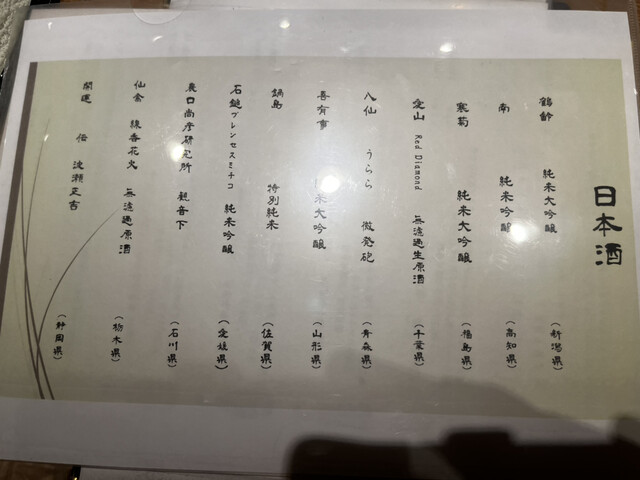 日本酒
鶴齢 純米大吟醸 (新潟県)
南 純米吟醸 (高知県)
寒菊 純米大吟醸 (福島県)
愛山 Red Diamond 無濾過生原酒 (千葉県)
八仙 うらら 微発砲 (青森県)
喜有事 純米大吟醸 (山形県)
鍋島 特別純米 (佐賀県)
石鎚プレンセスミチコ 純米吟醸 (愛媛県)
農口尚彦研究所 観音下 (石川県)
仙禽 線香花火 無濾過原酒 (栃木県)
開運 伝 波瀬正吉 (静岡県)